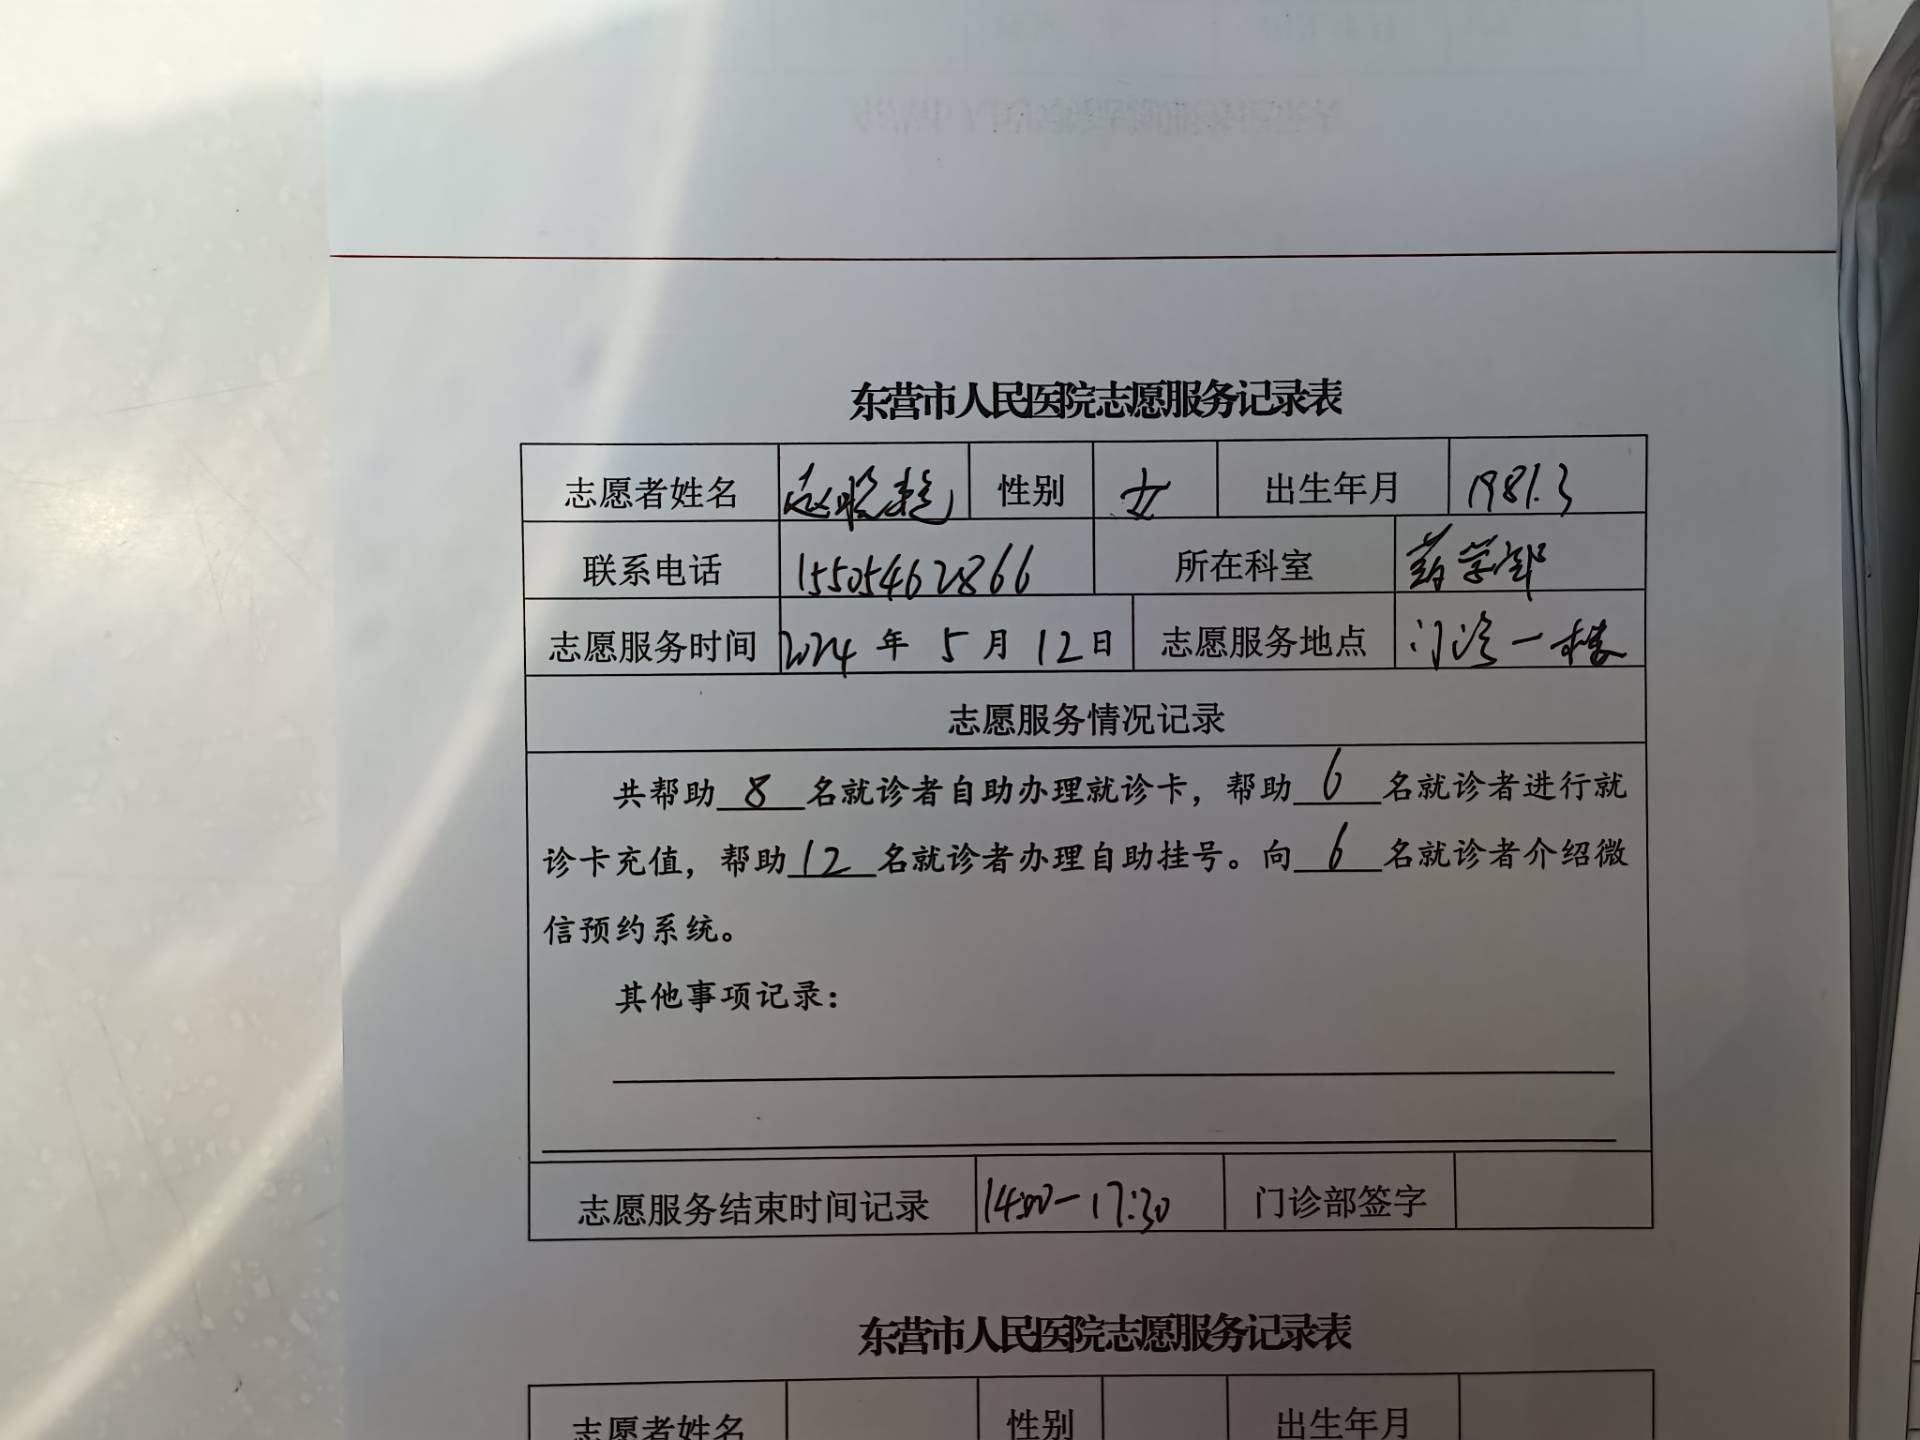 东营市人民医院志愿服务记录表
志愿者姓名 赵 性别 女 出生年月 1981.3
联系电话 15505462866 所在科室 药学部
志愿服务时间 2024 年 5 月 12 日 志愿服务地点 门诊一楼
志愿服务情况记录
共帮助 8 名就诊者自助办理就诊卡，帮助 6 名就诊者进行就
诊卡充值，帮助 12 名就诊者办理自助挂号。向 6 名就诊者介绍微
信预约系统。
其他事项记录：
志愿服务结束时间记录 14:00-17:30 门诊部签字
东营市人民医院志愿服务记录表
志愿者姓名 性别 出生年月